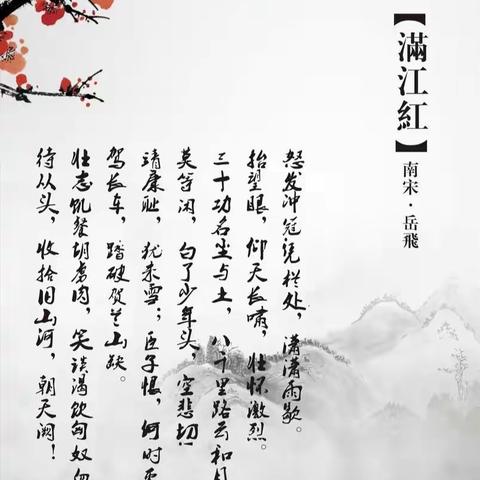 【滿江紅】
南宋·岳飛
怒发冲冠凭栏处，潇潇雨歇。
抬望眼，仰天长啸，壮怀激烈。
三十功名尘与土，八千里路云和月
莫等闲，白了少年头，空悲切！
靖康耻，犹未雪；臣子恨，何时
驾长车，踏破贺兰山缺。
壮志饥餐胡虏肉，笑谈渴饮匈奴
待从头，收拾旧山河，朝天阙！